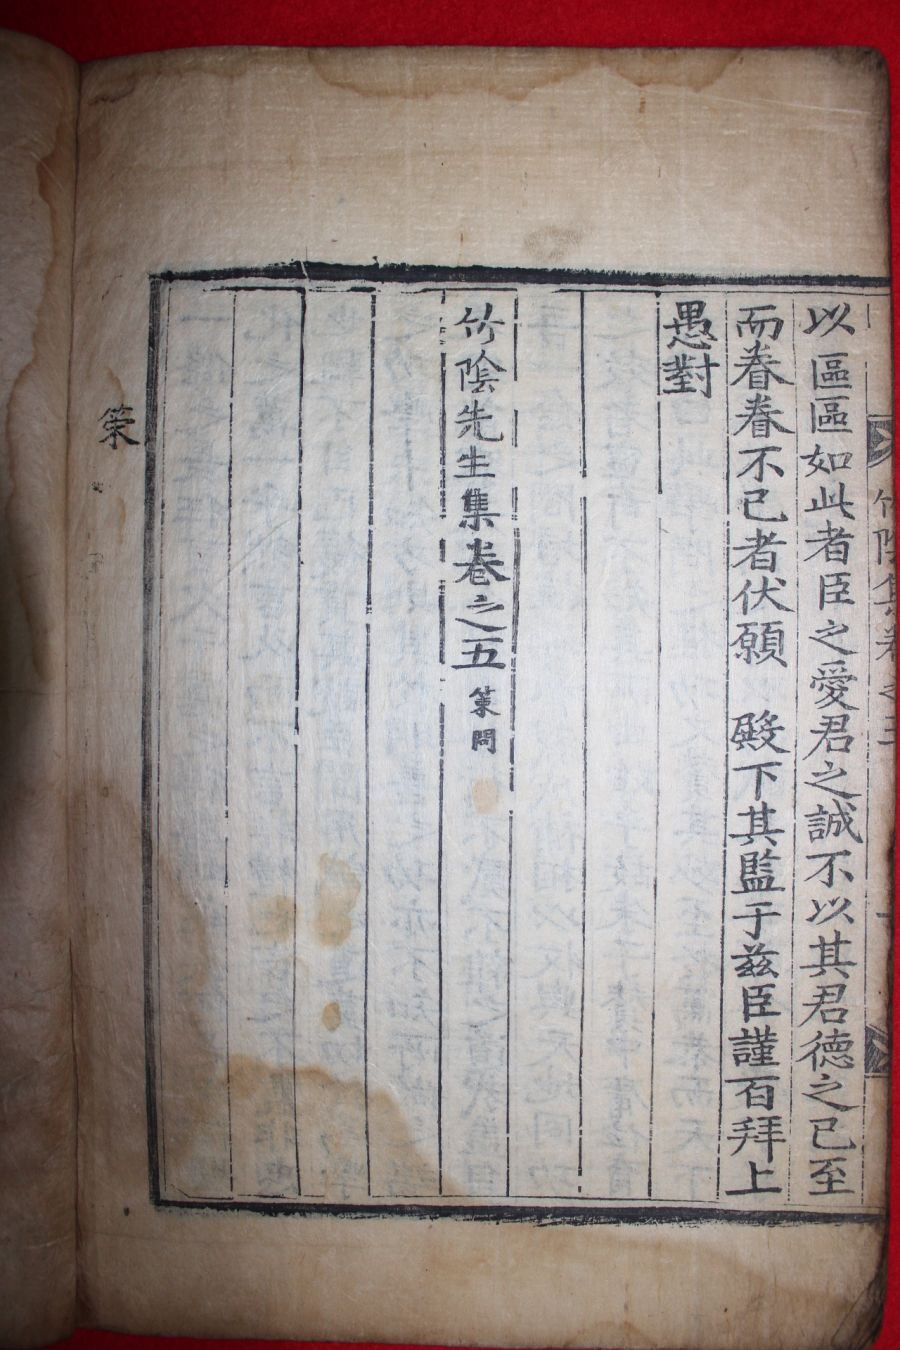 以區區如此者臣之愛君之誠不以其君德之已至
而眷眷不已者伏願 殿下其監于茲臣謹百拜上
愚對
竹陰先生集卷之五 策問
策
竹陰集卷之五